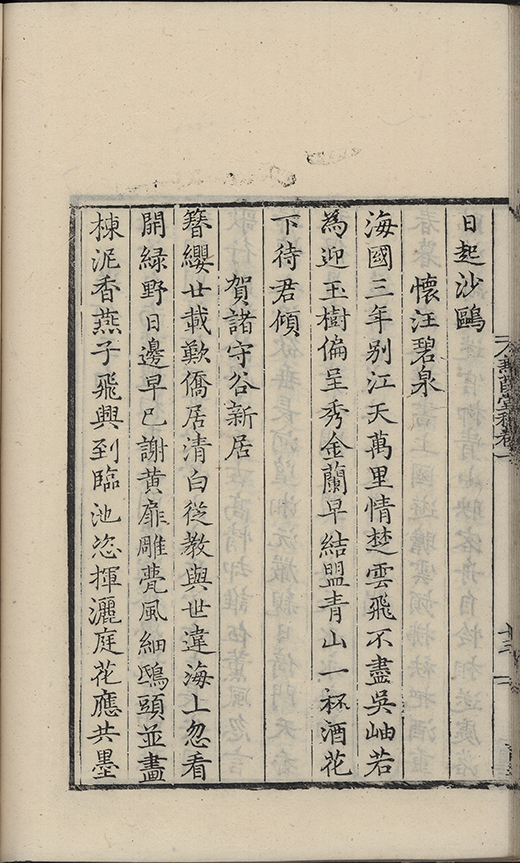 日起沙鷗
懷汪碧泉
海國三年别江天萬里情楚雲飛不盡吳岫若
為迎玉樹偏呈秀金蘭早結盟青山一杯酒花
下待君傾
賀諸守谷新居
簪纓廿載歎僑居清白從教與世違海上忽看
開緑野日邊早已謝黄扉雕甍風細鴟頭並畫
棟泥香燕子飛興到臨池恣揮灑庭花應共墨